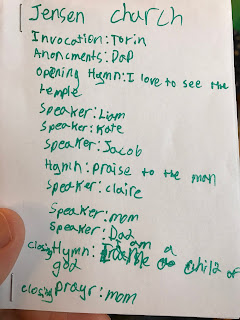 Jensen church
Invocation: Torin
Anoncments: Dad
opening Hymn: I love to see the
temple
Speaker: Liam
Speaker: Kate
Speaker: Jacob
Hymn: praise to the man
Speaker: claire
Speaker: mom
Speaker: Dad
closing Hymn: I am a child of
god
closing prayr: mom